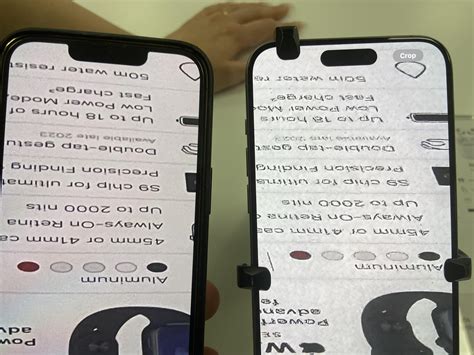 Crop
W
SE
Powerf
advan
fe
Aluminum
45mm or 41mm cas
Always-On Retina
Up to 2000 nits
S9 chip for ultima
Precision Finding
Double-tap gest
Available late 2023
Up to 18 hours
Low Power Mo
Fast charge
50m water re
Powerf
adv
Aluminum
45mm or 41mm cas
Always-On Retina
Up to 2000 nits
S9 chip for ultimat
Precision Finding
Double-tap gestu
Available late 2023
Up to 18 hours of
Low Power Mode
Fast charge
50m water resist